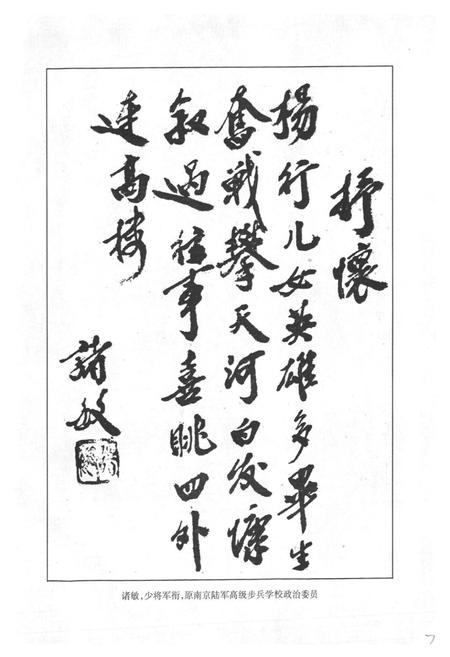 抒懷
楊行儿女英雄多畢生
奮戰攀天河白发慷
叙過往事喜眺四外
連高楼
諸敏
诸敏,少将军衔,原南京陆军高级步兵学校政治委员
7